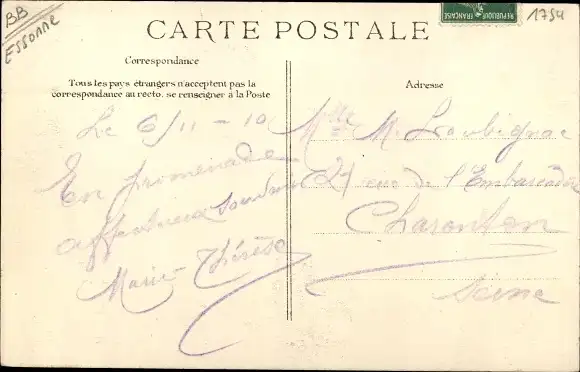 BB
ESSONNE
CARTE POSTALE
REPUBLIQUE FRANÇAISE
1754
Correspondance
Tous les pays étrangers n'acceptent pas la
correspondance au recto, se renseigner à la Poste
Adresse
Le 6/11 - 10
En promenade
affectueux
Marie Thérèse
Mlle M.
21 de l'Embarcadère
Charenton
Seine